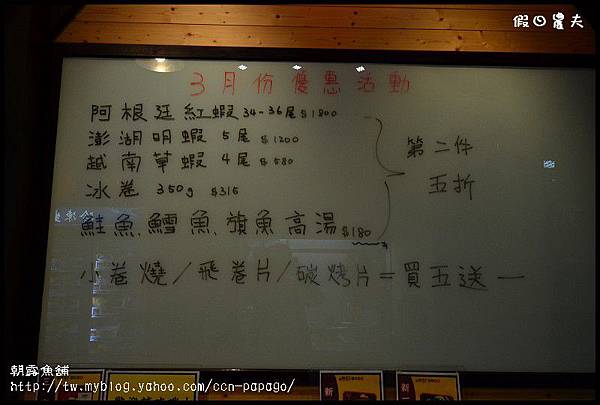 假日農夫
3月份優惠活動
阿根廷紅蝦 34-36尾 $1800
澎湖明蝦 5尾 $1200
越南草蝦 4尾 $580
冰卷 350g $315
鮭魚.鱈魚.旗魚高湯 $180
第二件
五折
小卷燒/飛卷片/碳烤片=買五送一
朝露魚舖
http://tw.myblog.yahoo.com/ccn-papago/